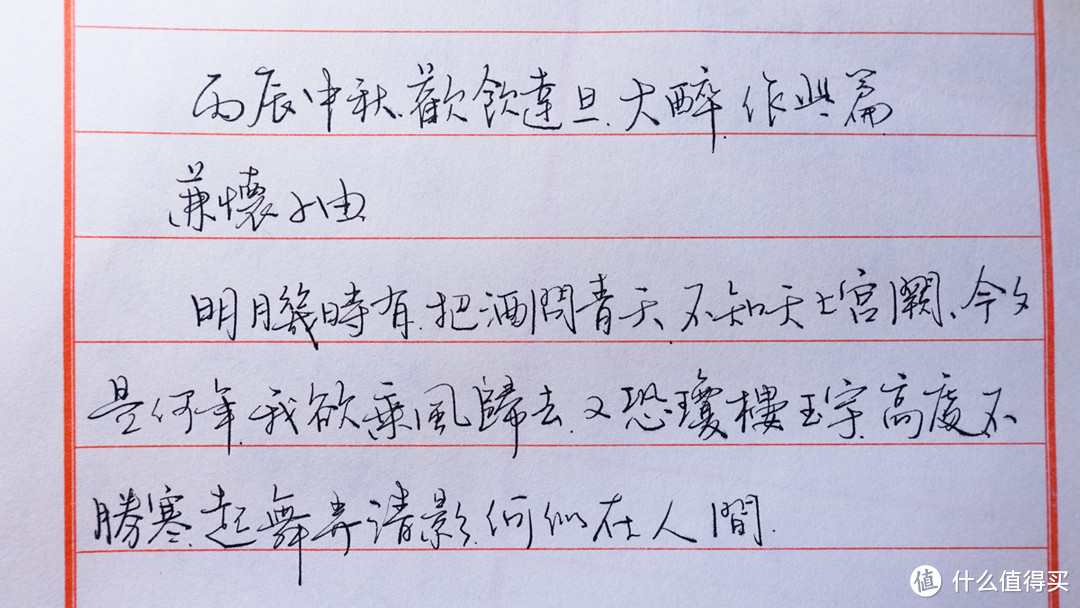 丙辰中秋.歡飲達旦.大醉.作此篇
兼懷子由
明月幾時有.把酒問青天.不知天上宮闕、今夕
是何年.我欲乘風歸去.又恐瓊樓玉宇.高處不
勝寒.起舞弄清影.何似在人間.
值 什么值得买